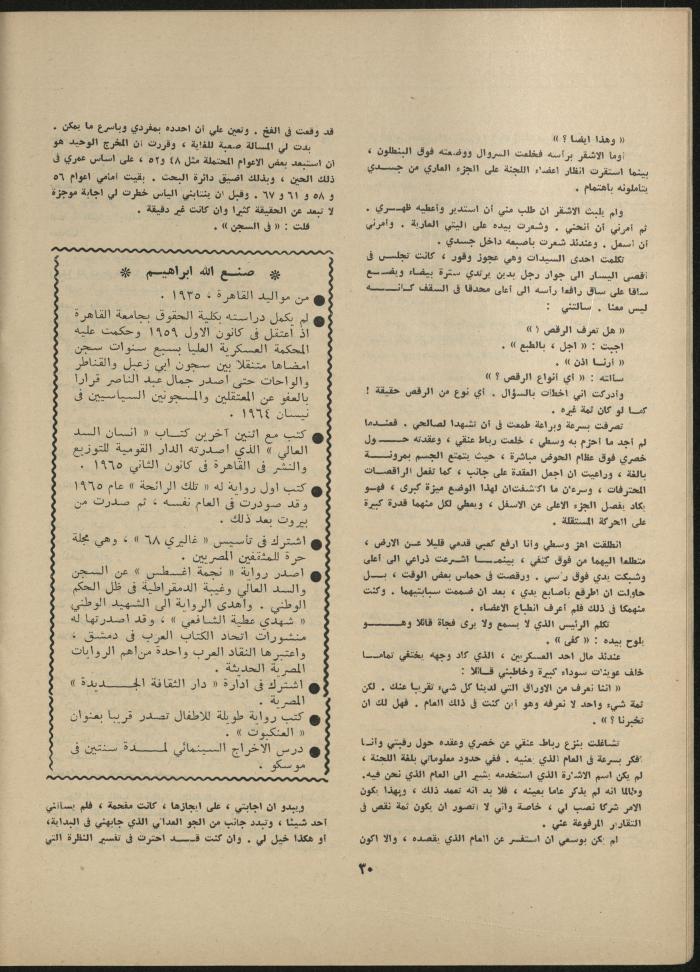 « وهذا ايضا ؟ »
أوما الاشقر برأسه فخلعت السروال ووضعته فوق البنطلون ،
بينما استقرت انظار اعضاء اللجنة على الجزء العاري من جسدي
يتأملونه باهتمام .
ولم يلبث الاشقر ان طلب مني أن استدير وأعطيه ظهـــري .
ثم أمرني أن أنحني . وشعرت بيده على اليتي العارية . وأمرني
أن أسعل . وعندئذ شعرت باصبعه داخل جسدي .
تكلمت احدى السيدات وهي عجوز وقور ، كانت تجلس في
أقصى اليسار الى جوار رجل بدين يرتدي سترة بيضاء ويضــع
ساقا على ساق رافعا رأسه الى أعلى محدقا في السقف كأنـــه
ليس معنا . سألتني :
« هل تعرف الرقص ؟ »
اجبت : « أجل ، بالطبع » .
« أرنا اذن » .
سألته : « أي أنواع الرقص ؟ »
وأدركت اني اخطأت بالسؤال . أي نوع من الرقص حقيقة !
كما لو كان ثمة غيره .
تصرفت بسرعة وبراعة طمعت في أن تشهدا لصالحي . فعندما
لم أجد ما أحزم به وسطي ، خلعت رباط عنقي ، وعقدته حـــول
خصري فوق عظام الحوض مباشرة ، حيث يتمتع الجسم بمرونـــة
بالغة ، وراعيت ان اجعل العقدة على جانب ، كما تفعل الراقصات
المحترفات ، وسرعان ما اكتشفت ان لهذا الوضع ميزة كبرى ، فهــو
يكاد يفصل الجزء الاعلى عن الاسفل ، ويعطي لكل منهما قدرة كبيرة
على الحركة المستقلة .
انطلقت اهز وسطي وأنا ارفع كعبي قدمي قليلا عـن الارض ،
متطلعا اليهما من فوق كتفي ، بينمـــا اشرعت ذراعي الى أعلى
وشبكت يدي فوق رأسي . ورقصت في حماس بعض الوقت ، بـــل
حاولت ان اطرقع بأصابع يدي ، بعد ان ضممت سبابتيهما . وكنت
منهمكا في ذلك فلم أعرف انطباع الاعضاء .
تكلم الرئيس الذي لا يسمع ولا يرى فجأة قائلا وهـــــو
يلوح بيده : « كفى » .
عندئذ مال احد العسكريين ، الذي كاد وجهه يختفي تمامـــا
خلف عوينات سوداء كبيرة وخاطبني قائلا :
« اننا نعرف من الاوراق التي لدينا كل شيء تقريبا عنك . لكن
ثمة شيء واحد لا نعرفه وهو اين كنت في ذلك العام . فهل لك ان
تخبرنا ؟ » .
تشاغلت بنزع رباط عنقي عن خصري وعقده حول رقبتي وأنـا
افكر بسرعة في العام الذي يعنيه . ففي حدود معلوماتي بلغة اللجنة ،
لم يكن اسم الاشارة الذي استخدمه يشير الى العام الذي نحن فيه.
وطالما انه لم يذكر عاما بعينه ، فلا بد انه تعمد ذلك ، وبهذا يكون
الامر شركا نصب لي ، خاصة وأني لا أتصور ان يكون ثمة نقص في
التقارير المرفوعة عني .
لم يكن بوسعي ان استفسر عن العام الذي يقصده ، والا اكون
قد وقعت في الفخ . وتعين علي ان احدده بمفردي وبأسرع ما يمكن .
بدت لي المسألة صعبة للغاية ، وقررت أن المخرج الوحيد هو
ان استبعد بعض الاعوام المحتملة مثل ٤٨ و٥٢ ، على اساس عمري في
ذلك الحين ، وبذلك اضيق دائرة البحث . بقيت امامي اعوام ٥٦
و ٥٨ و ٦١ و ٦٧ . وقبل ان ينتابني اليأس خطرت لي اجابة موجزة
لا تبعد عن الحقيقة كثيرا وان كانت غير دقيقة .
قلت : « في السجن » .
* صنـع الله ابراهيـم *
● من مواليد القاهرة ، ١٩٣٥ .
● لم يكمل دراسته بكلية الحقوق بجامعة القاهرة
اذ أعتقل في كانون الاول ١٩٥٩ وحكمت عليه
المحكمة العسكرية العليا بسبع سنوات سجن
امضاها متنقلا بين سجون ابي زعبل والقناطر
والواحات حتى اصدر جمال عبد الناصر قرارا
بالعفو عن المعتقلين والمسجونين السياسيين في
نيسان ١٩٦٤ .
● كتب مع اثنين آخرين كتـاب « انسان السد
العالي » الذي اصدرته الدار القومية للتوزيع
والنشر في القاهرة في كانون الثاني ١٩٦٥ .
● كتب اول رواية له « تلك الرائحة » عام ١٩٦٥
وقد صودرت في العام نفسه ، ثم صدرت من
بيروت بعد ذلك .
● اشترك في تأسيس « غاليري ٦٨ » ، وهي مجلة
حرة للمثقفين المصريين .
● اصدر رواية « نجمة اغسطس » عن السجن
والسد العالي وغيبة الدمقراطية في ظل الحكم
الوطني . وأهدى الرواية الى الشهيد الوطني
« شهدي عطية الشافعي » ، وقد اصدرتها له
منشورات اتحاد الكتاب العرب في دمشق ،
واعتبرها النقاد العرب واحدة من اهم الروايات
المصرية الحديثة .
● اشترك في ادارة « دار الثقافة الجـــديدة »
المصرية .
● كتب رواية طويلة للاطفال تصدر قريبا بعنوان
« العنكبوت » .
● درس الاخراج السينمائي لمـــدة سنتين في
موسكو .
ويبدو ان اجابتي ، على ايجازها ، كانت مفحمة ، فلم يسألني
أحد شيئا ، وتبدد جانب من الجو العدائي الذي جابهني في البداية،
أو هكذا خيل لي . وان كنت قـــد احترت في تفسير النظرة التي
٣٠